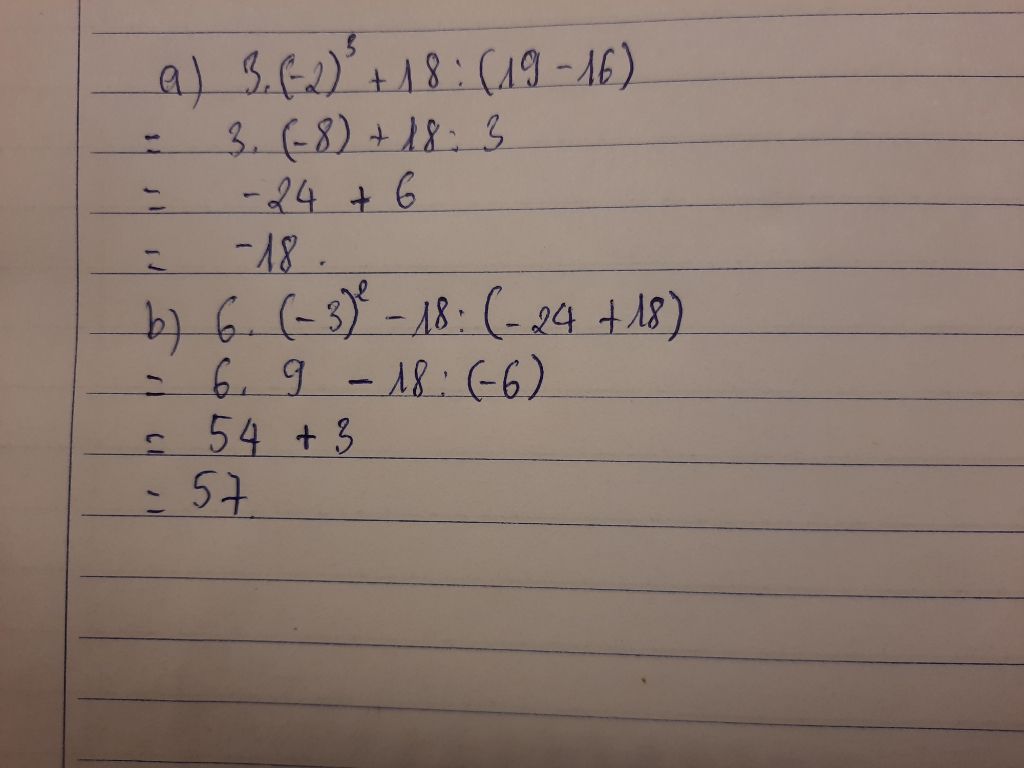 a) 3.(-2)³ + 18 : (19 - 16)
= 3. (-8) + 18 : 3
= -24 + 6
= -18 .
b) 6. (-3)² - 18 : (-24 + 18)
= 6. 9 - 18 : (-6)
= 54 + 3
= 57